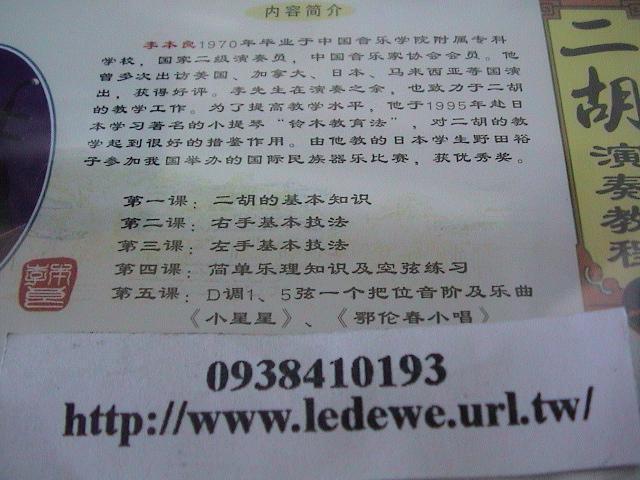 内容简介
李本良1970年毕业于中国音乐学院附属专科
学校，国家二级演奏员，中国音乐家协会会员。他
曾多次出访美国、加拿大、日本、马来西亚等国演
出，获得好评。李先生在演奏之余，也致力于二胡
的教学工作。为了提高教学水平，他于1995年赴日
本学习著名的小提琴“铃木教育法”，对二胡的教
学起到很好的措鉴作用。由他教的日本学生野田裕
子参加我国举办的国际民族器乐比赛，获优秀奖。
第一课：二胡的基本知识
第二课：右手基本技法
第三课：左手基本技法
第四课：简单乐理知识及空弦练习
第五课：D调1、5弦一个把位音阶及乐曲
《小星星》、《鄂伦春小唱》
二胡演奏教程
0938410193
http://www.ledewe.url.tw/